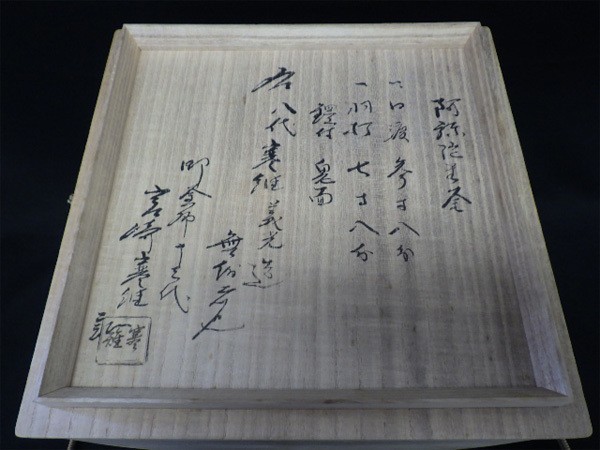 阿弥陀堂釜
一口渡 参寸八分
一 七寸八分
鐶付 鬼面
右八代寒雉義光造
無相違者也
御釜師十三代
宮崎寒雉
寒雉